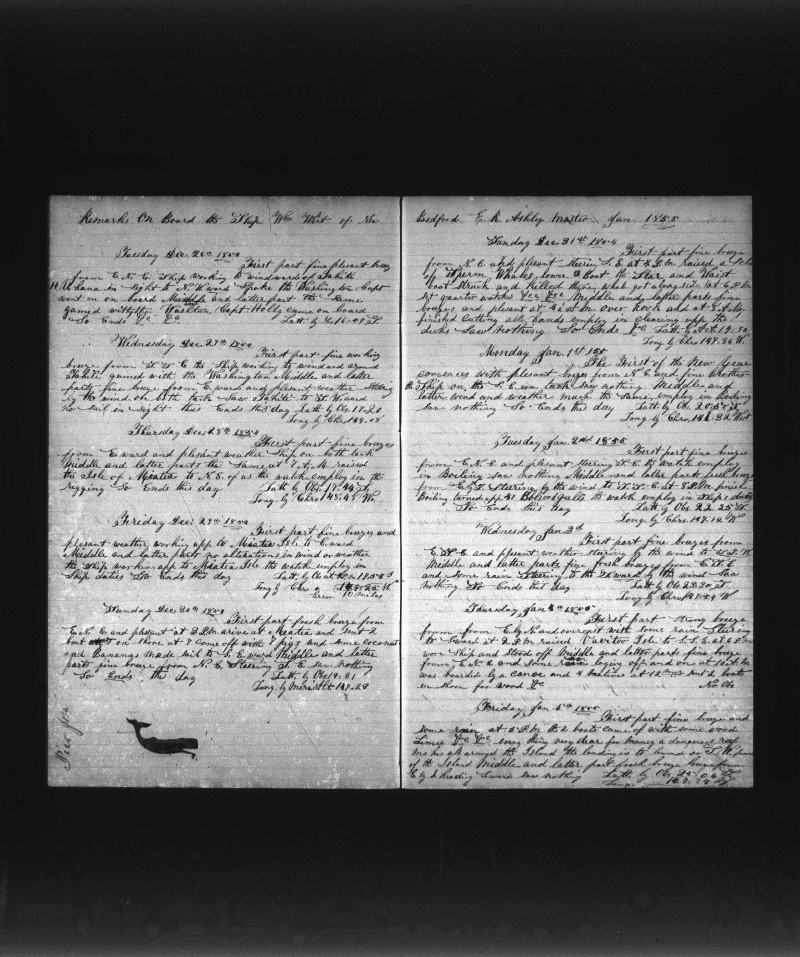 Remarks On Board the Ship Wm Wirt of New
Tuesday Dec 26th 1854
First part fine plesant breez
from E N E Ship working to windward of Tahita
in sight to N Ward Spoke the Washington Capt
went on on board Middle and latter part the Same
gamed with Ship Washton Capt Holly came on board
So Ends &c &c Latt by Obs 16-49 S
Wednesday Dec 27th 1854
First part fine working
breeze from the Ship working to windward around
Tahiti gamed with the Washington Middle and latter
parts fine breez from E ward and plesant weather Steering
by the wind on both tack Saw Tahiti to S Ward
no sail in sight this Ends this day Latt by Obs 17-20
Long by Chro 149-05
Thursday Dec 28th 1854
First part fine breezes
from E ward and plesant weather Ship on both tack
Middle and latter part the Same at 7 A.M. raised
the Isle of Maatia to N E of us the watch employ in the
rigging So Ends this day Latt by Obs 17-44 S
Long by Chro 148-45 W
Friday Dec 29th 1854
First part fine breezes and
plesant weather working app to Maatia Isle to E ward
Middle and latter parts no altrations in wind or weather
the ship working app to Maatia Isle the watch employ in
Ship duties So Ends this day Latt by Ob 17-54 S
Long by Chro
Error 10 miles
Dec 30th 1854
First part fresh breeze from
E N E and plesant at 3 P.M arive at Maatia and sent 2
boat on shore at 7 Come off with 7 pigs and some coconut
and Bananas made sail to S E ward Middle and latter
parts fine breeze from N. E. Steering S. E saw nothing
So Ends this day Latt by Obs 19-31
Long by Meridth 147-23
Bedford E. R. Ashley Master Jan 1855
Sunday Dec 31st 1854
First part fine breeze
from N. E and plesant Steerin S. E at 4 P.M raised a
of Sperm Whales lower a boat the Star and Waist
boat Struck and killed three whal got along side at 6 P.M
Set quarter watches &c &c Middle and latter parts fine
breezes and plesant at 4 A.M. over hook and at
finised Cutting all hands employ in clearing app the
decks Saw Nothing So Ends &c Latt by Obs 19-50
Long by Chro 147-36 W.
Monday Jan. 1st 185
The First of the New Year
comences with plesant breeze from N E and fine weather
the Ship on the S. E. ern tack Saw nothing Middle and
latter wind and weather much the Same employ in boiling
saw nothing So Ends this day Latt by Obs 20-50 S
Long by Chro 146-32 West
Tuesday Jan. 2nd 1855
First part fine breezes
from E. N. E and plesant Steering S. E by watch employ
in Boiling saw nothing Middle and latter parts fresh breeze
from Steering by the wind to at 8 P.M finish
Boiling turned app the watch employ in Ships duties
So Ends this day Latt by Ob 22 25 S
Long by Chro 147-12 W
Wednesday Jan 3d
First part fine breezes from
and plesant weather stearing by the wind to
Middle and latter parts fine fresh breezes from
and Some rain Steering to the ward by the wind Saw
nothing So Ends this day Latt by Ob
Long by Chro 147-29 W
Thursday Jan 4th 1855
First part strong breeze
from from E by N and overcast with some rain Steering
to S ward at 2 P.M raised Vavitoo Isle to S. S. E at 6 P.M
wore Ship and Stood off Middle and latter parts fine breeze
from E N E and Some Rain laying off and on at 10 A.M
was boarded by a canoe and 4 natives at 12 sent 2 boats
on Shore for wood &c No Obs
Friday Jan. 5th 1855
First part fine breeze and
some rain at 5 P.M the 2 boats came of with some wood
Limes &c &c every thing very dear for money a dangerous reef
runs all around the Island the landing is to
of the Island Middle and latter part fresh breeze from
heading S ward saw nothing Latt by Obs
Long